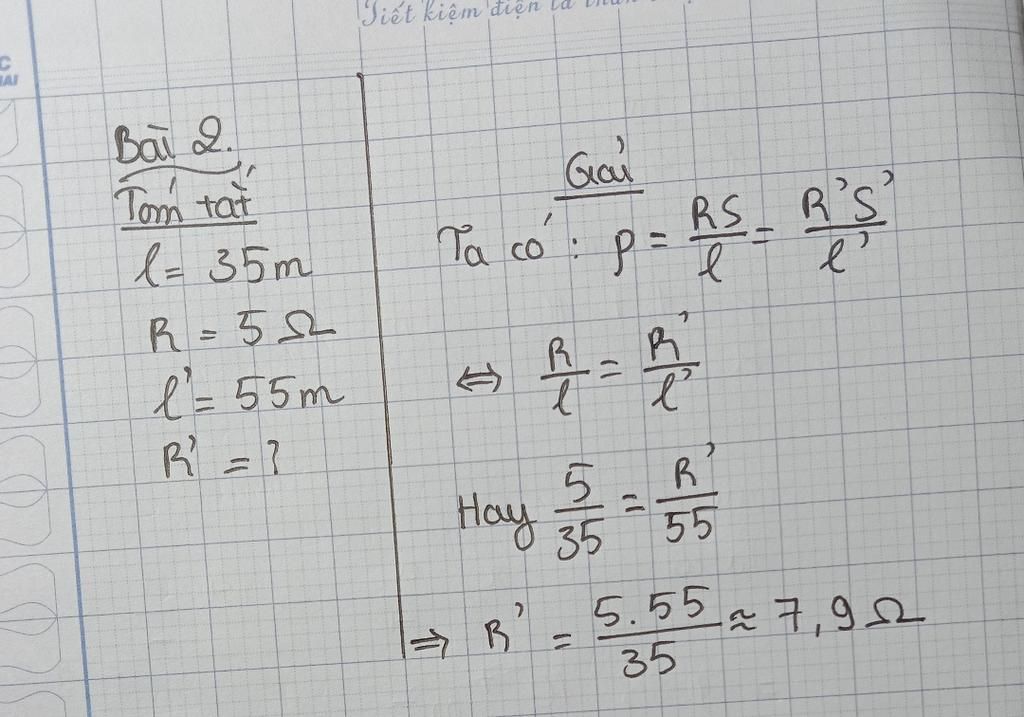 Tiết kiệm điện là
C
IAI
Bài 2.
Tóm tắt
l = 35m
R = 5 Ω
l' = 55m
R' = ?
Giải
Ta có : ρ = RS/l = R'S'/l'
⇔ R/l = R'/l'
Hay 5/35 = R'/55
⇒ R' = 5.55/35 ≈ 7,9 Ω